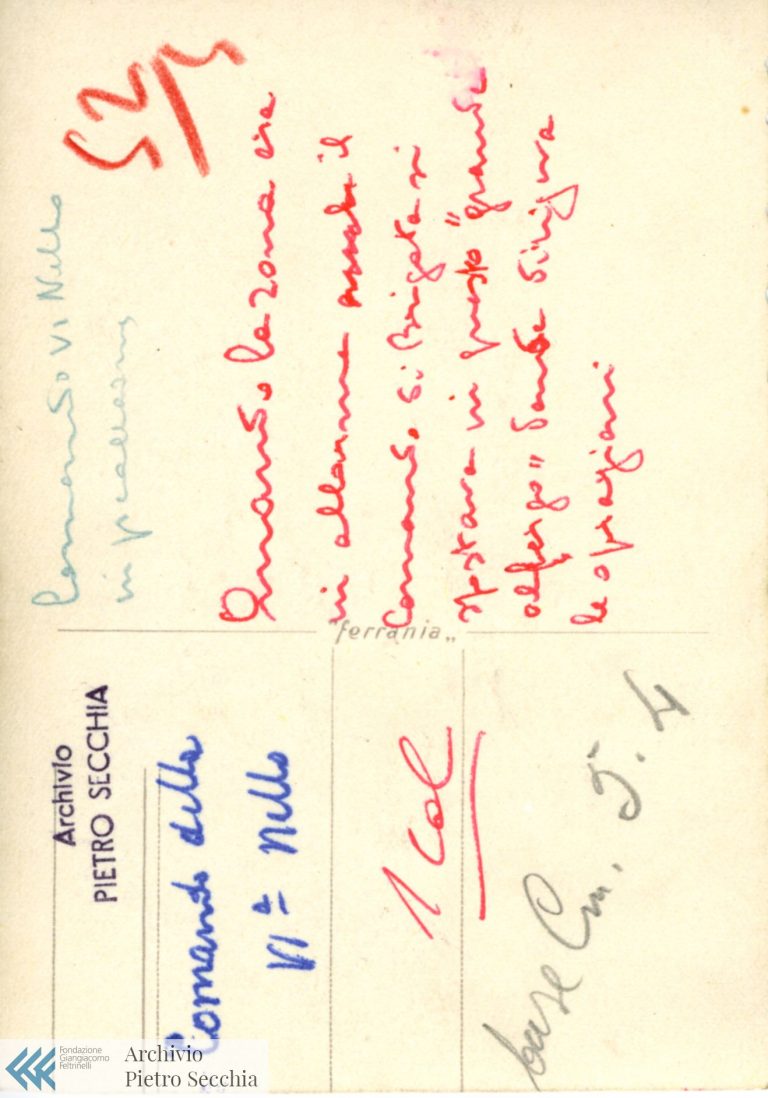 Comando VI Nello
in
52/1
Quando la zona era
in allarme anche il
Comando di Brigata si
spostava in questo "grande
albergo" donde dirigeva
le operazioni
"ferrania"
Archivio
PIETRO SECCHIA
Comando della
VIª Nello
1 Col
base Cm. 5.4
Fondazione
Giangiacomo
Feltrinelli
Archivio
Pietro Secchia